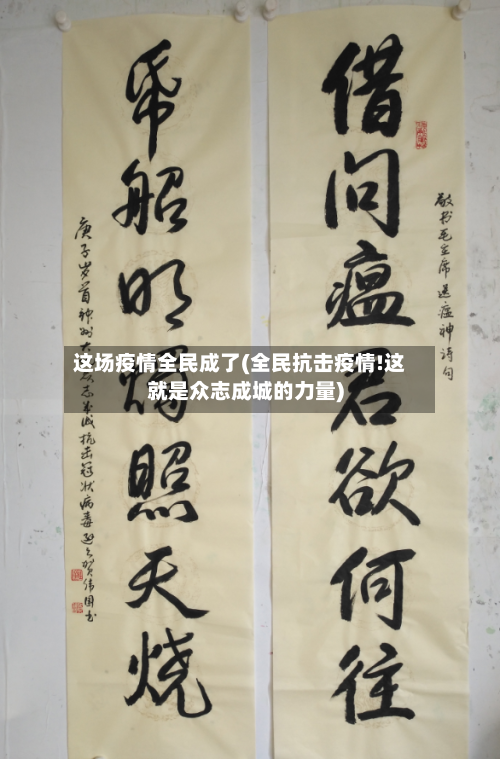 敬书毛主席送瘟神诗句
借问瘟君欲何往
帋船明烛照天烧
庚子岁首神州大众志成城抗击冠状病毒贺伟国书
这场疫情全民成了(全民抗击疫情!这
就是众志成城的力量)